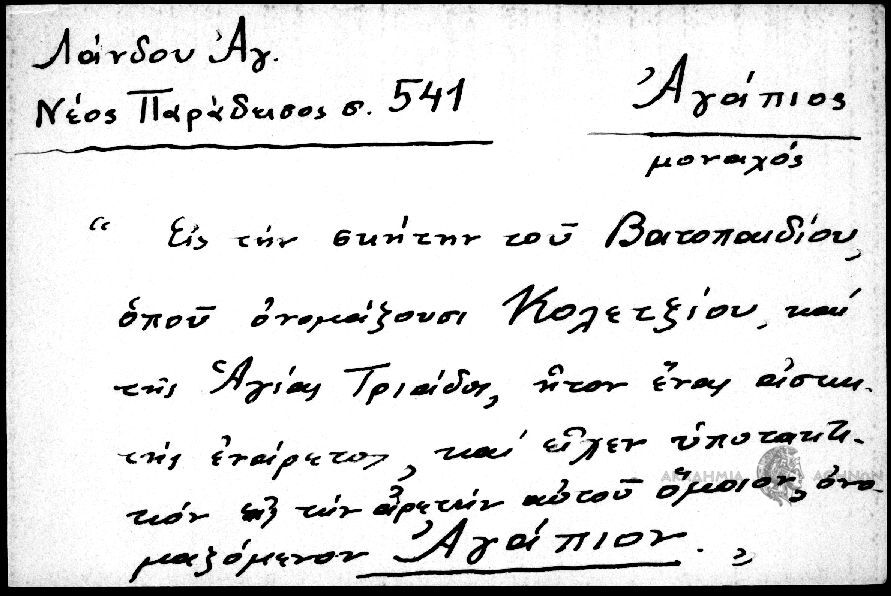 Λάνδου Ἀγ.
Νέος Παράδεισος σ. 541
Ἀγάπιος
μοναχός
“ Εἰς τὴν σκήτην τοῦ Βατοπαιδίου,
ὁποῦ ὀνομάζουσι Κολετζίου, καὶ
τῆς Ἁγίας Τριάδος, ἦτον ἕνας ἀσκη-
τὴς ἐνάρετος, καὶ εἶχεν ὑποτακτι-
κὸν εἰς τὴν ἀρετὴν αὐτοῦ ὅμοιον, ὀνο-
μαζόμενον Ἀγάπιον. „
ΑΚΑΔΗΜΙΑ ΑΘΗΝΩΝ